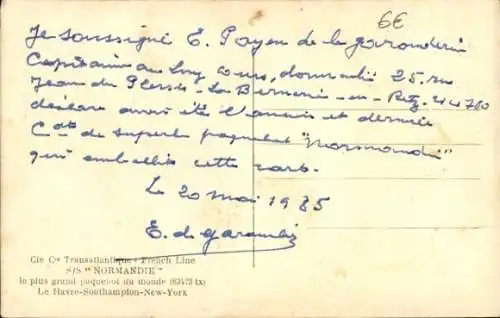 6€
Je soussigné E. Payen de la garanderie
Capitaine au Long Cours, domicilié 25 rue
Jean du Plessis - La Bernerie - en - Retz - 44760
déclare avoir été l'ancien et dernier
Cdt de superbe paquebot "Normandie"
qui embellit cette carte.
Le 20 mai 1985
E. de garanderie
Cie Gle Transatlantique - French Line
S/S "NORMANDIE"
le plus grand paquebot du monde (83423 tx)
Le Havre-Southampton-New-York